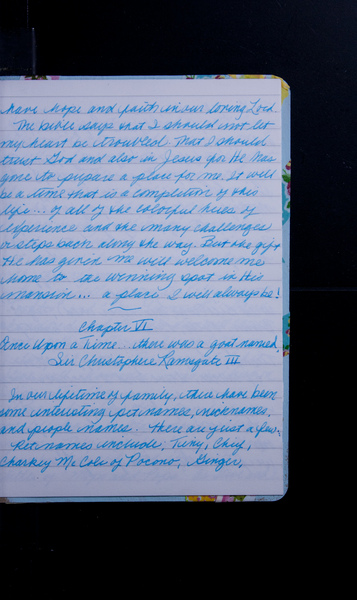 have hope and faith in our loving Lord.
The bible says that I should not let
my heart be troubled. That I should
trust God and also in Jesus for He has
gone to prepare a place for me. It will
be a time that is a completion of this
life... of all of the colorful hues of
experience and the many challenges
or steps back along the way. But the gift
He has given me will welcome me
home to the winning spot in His
mansion... a place I will always be!
Chapter VI
Once Upon a Time... there was a goat named,
Sir Christophere Ramsgate III
In our lifetime of family, there have been
some interesting pet names, nicknames,
and people names. There are just a few.
Pet names include, Tiny, Chief,
Charkey Mc Cole of Pocono, Ginger,